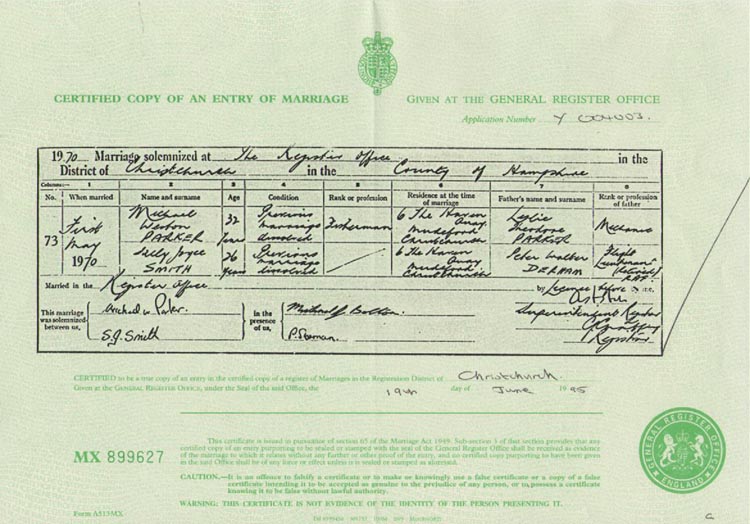 CERTIFIED COPY OF AN ENTRY OF MARRIAGE
GIVEN AT THE GENERAL REGISTER OFFICE
Application Number Y 004003.
1970 Marriage solemnized at The Register Office in the
District of Christchurch in the County of Hampshire
Columns:— 1 2 3 4 5 6 7 8
No. When married Name and surname Age Condition Rank or profession Residence at the time of marriage Father's name and surname Rank or profession of father
73 First May 1970
Michael Weston PARKER 32 years Previous marriage dissolved Fisherman 6 The Haven Quay Mudeford Christchurch Leslie Theodore PARKER Mechanic
Joyce SMITH 26 years Previous marriage dissolved 6 The Haven Quay Mudeford Christchurch Peter Walter Flight Lieutenant (Retired) RAF
Married in the Register Office by Licence before me,
This marriage was solemnized between us,
Michael W Parker.
S.J. Smith
in the presence of us,
Michael J Bolton
Superintendent Registrar
Registrar
CERTIFIED to be a true copy of an entry in the certified copy of a register of Marriages in the Registration District of Christchurch.
Given at the GENERAL REGISTER OFFICE, under the Seal of the said Office, the 19th day of June 1995
MX 899627
This certificate is issued in pursuance of section 65 of the Marriage Act 1949. Sub-section 3 of that section provides that any
certified copy of an entry purporting to be sealed or stamped with the seal of the General Register Office shall be received as evidence
of the marriage to which it relates without any further or other proof of the entry, and no certified copy purporting to have been given
in the said Office shall be of any force or effect unless it is sealed or stamped as aforesaid.
CAUTION.—It is an offence to falsify a certificate or to make or knowingly use a false certificate or a copy of a false
certificate intending it to be accepted as genuine to the prejudice of any person, or to possess a certificate
knowing it to be false without lawful authority.
WARNING: THIS CERTIFICATE IS NOT EVIDENCE OF THE IDENTITY OF THE PERSON PRESENTING IT.
Form A513MX
GENERAL REGISTER OFFICE
ENGLAND